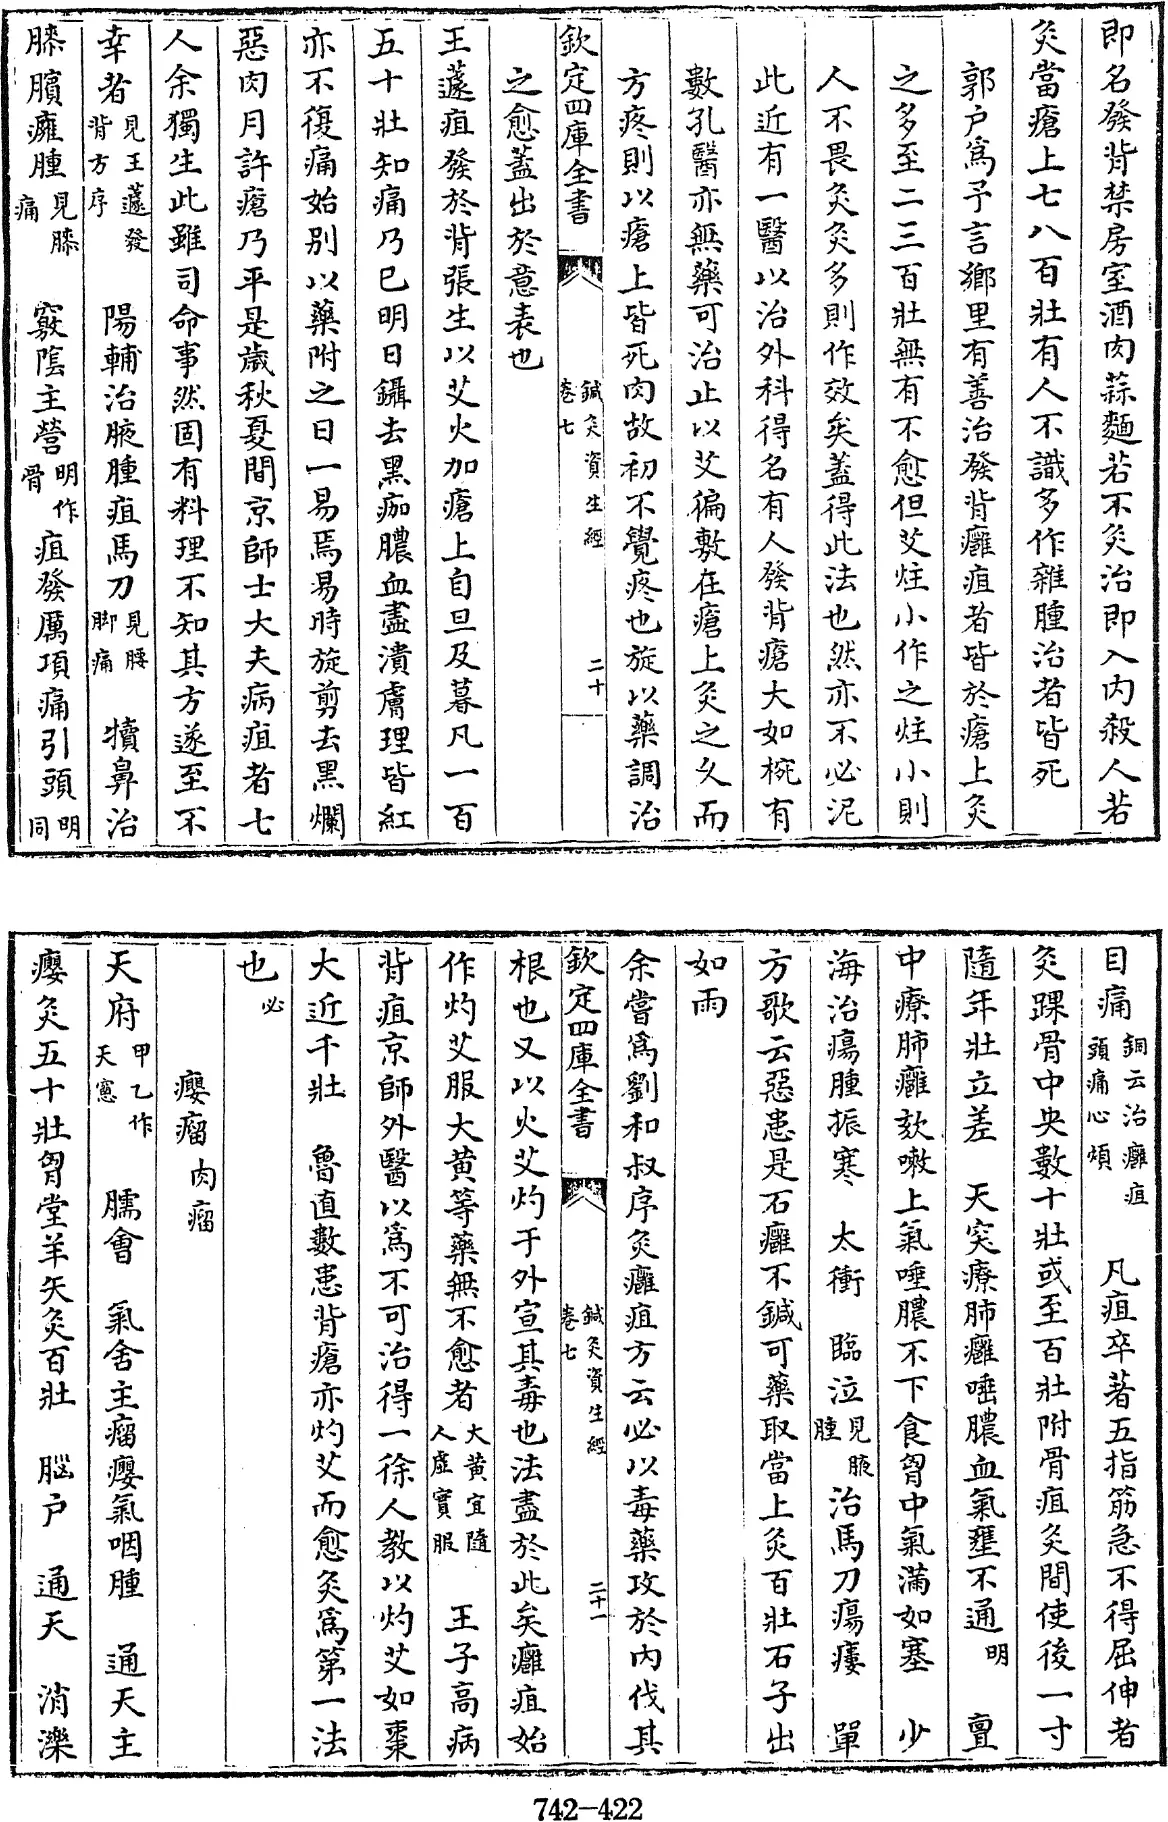 即名發背禁房室酒肉蒜麵若不灸治即入内殺人若
灸當瘡上七八百壯有人不識多作雜腫治者皆死
郭户爲予言鄉里有善治發背癰疽者皆於瘡上灸
之多至二三百壯無有不愈但艾炷小作之炷小則
人不畏灸灸多則作效矣蓋得此法也然亦不必泥
此近有一醫以治外科得名有人發背瘡大如椀有
數孔醫亦無藥可治止以艾徧敷在瘡上灸之久而
方疼則以瘡上皆死肉故初不覺疼也旋以藥調治
欽定四庫全書 鍼灸資生經 卷七 二十
之愈蓋出於意表也
王蘧疽發於背張生以艾火加瘡上自旦及暮凡一百
五十壯知痛乃已明日鑷去黑痂膿血盡潰膚理皆紅
亦不復痛始别以藥附之日一易焉易時旋剪去黑爛
惡肉月許瘡乃平是歲秋夏間京師士大夫病疽者七
人余獨生此雖司命事然固有料理不知其方遂至不
幸者見王蘧發背方序 陽輔治腋腫疽馬刀見腰脚痛 犢鼻治
膝臏癰腫見膝痛 竅陰主營明作骨疽發厲項痛引頭明同
目痛銅云治癰疽頭痛心煩 凡疽卒著五指筋急不得屈伸者
灸踝骨中央數十壯或至百壯附骨疽灸間使後一寸
隨年壯立差 天突療肺癰唾膿血氣壅不通明 亶
中療肺癰欬嗽上氣唾膿不下食胷中氣滿如塞 少
海治瘍腫振寒 太衝 臨泣見腋腫治馬刀瘍瘻 單
方歌云惡患是石癰不鍼可藥取當上灸百壯石子出
如雨
余嘗爲劉和叔序灸癰疽方云必以毒藥攻於内伐其
欽定四庫全書 鍼灸資生經 卷七 二十一
根也又以火艾灼于外宣其毒也法盡於此矣癰疽始
作灼艾服大黄等藥無不愈者大黄宜隨人虚實服 王子高病
背疽京師外醫以爲不可治得一徐人教以灼艾如棗
大近千壯 魯直數患背瘡亦灼艾而愈灸爲第一法
也必
癭瘤肉瘤
天府甲乙作天窻 臑會 氣舍主瘤癭氣咽腫 通天主
癭灸五十壯胷堂羊矢灸百壯 腦户 通天 消濼
742-422